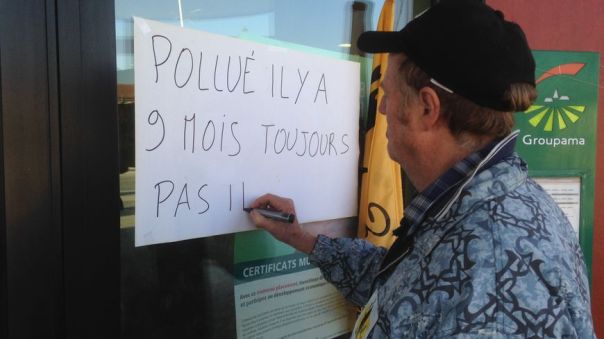 POLLUÉ IL Y A
9 MOIS TOUJOURS
PAS I
Groupama
CERTIFICATS MU